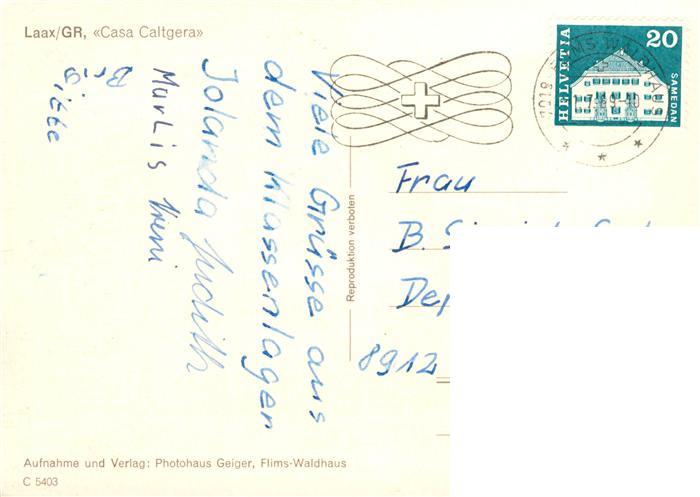 Laax/GR, «Casa Caltgera»
Viele Grüsse aus
dem Klassenlager
Jolanda Judith
Marlis Vreni
Reproduktion verboten
HELVETIA
20
SAMEDAN
7018 FLIMS WALDHAUS
Frau
B.
8912
Aufnahme und Verlag: Photohaus Geiger, Flims-Waldhaus
C 5403